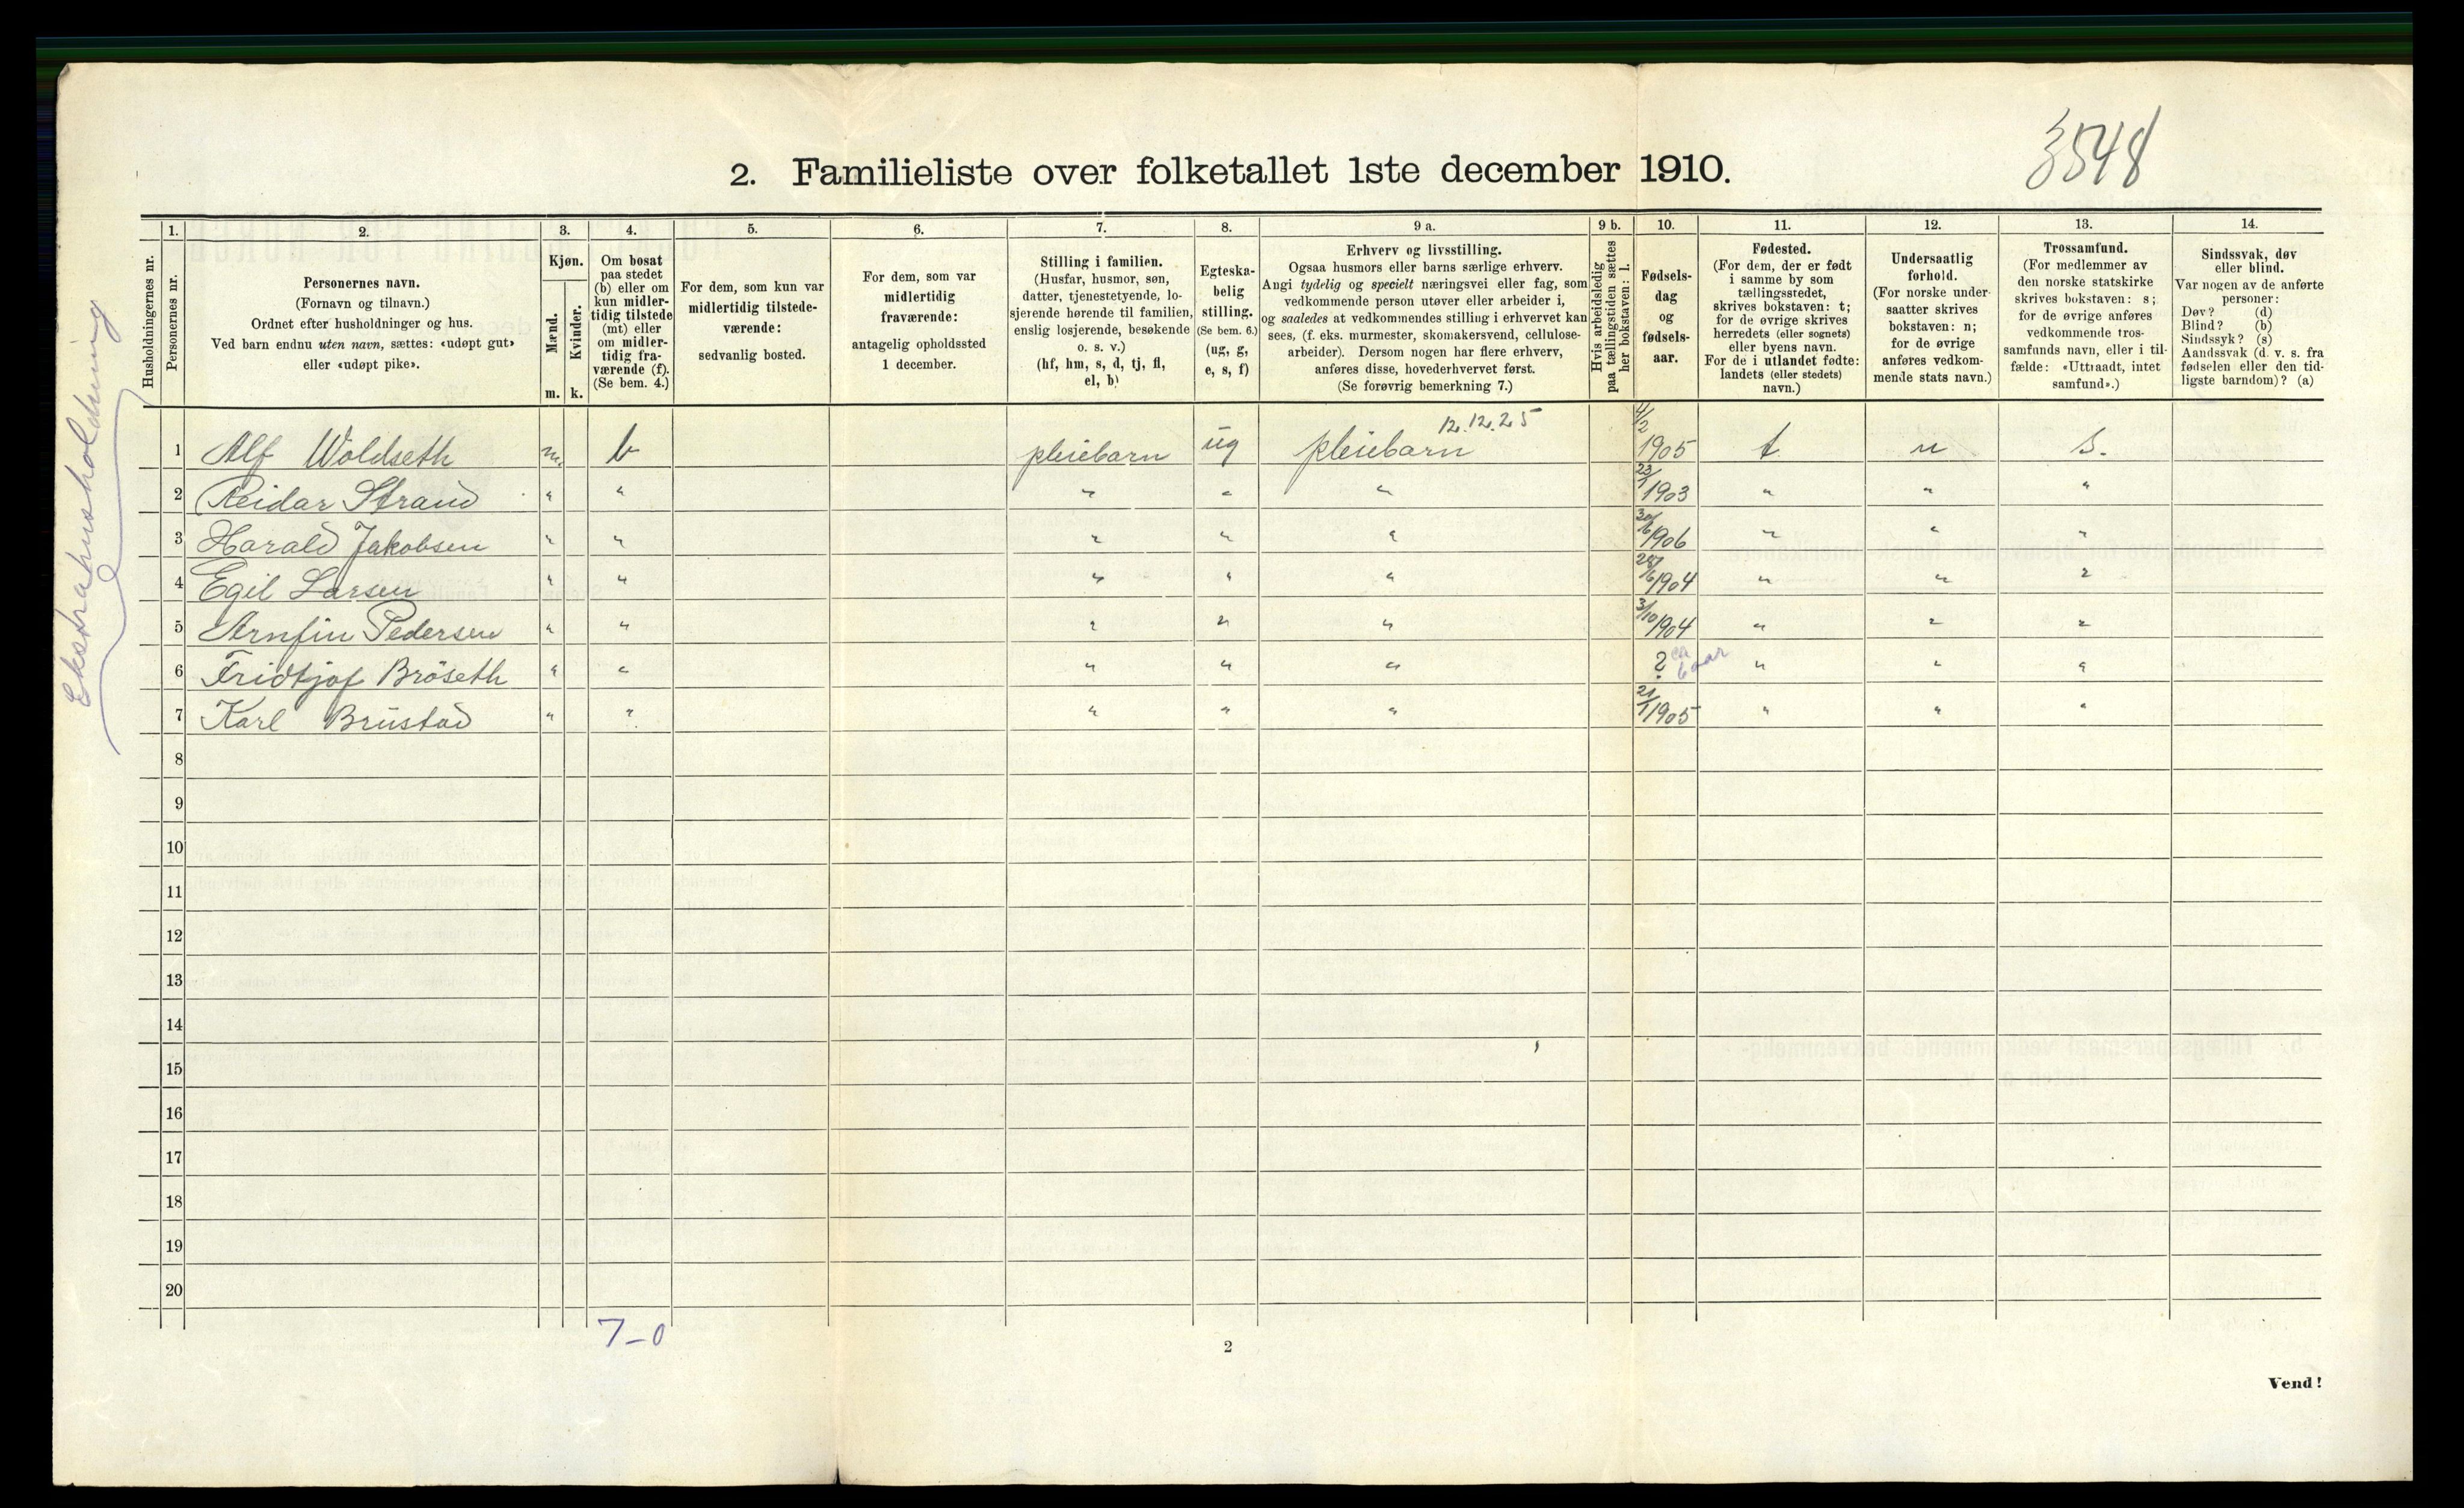 3548
2. Familieliste over folketallet 1ste december 1910.
Ekstrahusholdning
Husholdningernes nr.
1.
Personernes nr.
2.
Personernes navn.
(Fornavn og tilnavn.)
Ordnet efter husholdninger og hus.
Ved barn endnu uten navn, sættes: «udøpt gut»
eller «udøpt pike».
3.
Kjøn.
Mænd.
Kvinder.
m. k.
4.
Om bosat
paa stedet
(b) eller om
kun midler-
tidig tilstede
(mt) eller
om midler-
tidig fra-
værende (f).
(Se bem. 4.)
5.
For dem, som kun var
midlertidig tilstede-
værende:
sedvanlig bosted.
6.
For dem, som var
midlertidig
fraværende:
antagelig opholdssted
1 december.
7.
Stilling i familien.
(Husfar, husmor, søn,
datter, tjenestetyende, lo-
sjerende hørende til familien,
enslig losjerende, besøkende
o. s. v.)
(hf, hm, s, d, tj, fl,
el, b)
8.
Egteska-
belig
stilling.
(Se bem. 6.)
(ug, g,
e, s, f)
9 a.
Erhverv og livsstilling.
Ogsaa husmors eller barns særlige erhverv.
Angi tydelig og specielt næringsvei eller fag, som
vedkommende person utøver eller arbeider i,
og saaledes at vedkommendes stilling i erhvervet kan
sees, (f. eks. murmester, skomakersvend, cellulose-
arbeider). Dersom nogen har flere erhverv,
anføres disse, hovederhvervet først.
(Se forøvrig bemerkning 7.)
9 b.
Hvis arbeidsledig
paa tællingstiden sættes
her bokstaven: l.
10.
Fødsels-
dag
og
fødsels-
aar.
11.
Fødested.
(For dem, der er født
i samme by som
tællingsstedet,
skrives bokstaven: t;
for de øvrige skrives
herredets (eller sognets)
eller byens navn.
For de i utlandet fødte:
landets (eller stedets)
navn.)
12.
Undersaatlig
forhold.
(For norske under-
saatter skrives
bokstaven: n;
for de øvrige
anføres vedkom-
mende stats navn.)
13.
Trossamfund.
(For medlemmer av
den norske statskirke
skrives bokstaven: s;
for de øvrige anføres
vedkommende tros-
samfunds navn, eller i til-
fælde: «Uttraadt, intet
samfund».)
14.
Sindssvak, døv
eller blind.
Var nogen av de anførte
personer:
Døv? (d)
Blind? (b)
Sindssyk? (s)
Aandssvak (d. v. s. fra
fødselen eller den tid-
ligste barndom)? (a)
12.12.25
1 Alf Woldseth m. b pleiebarn ug pleiebarn 4/2 1905 t n s.
2 Reidar Strand " " " " " 23/1 1903 " " "
3 Harald Jakobsen " " " " " 30/6 1906 " " "
4 Egil Larsen " " " " " 28/6 1904 " " "
5 Arnfin Pedersen " " " " " 3/10 1904 " " "
6 Fridtjof Bröseth " " " " " ? ca 6 aar " " "
7 Karl Brustad " " " " " 21/1 1905 " " "
8
9
10
11
12
13
14
15
16
17
18
19
20
7-0
2
Vend!